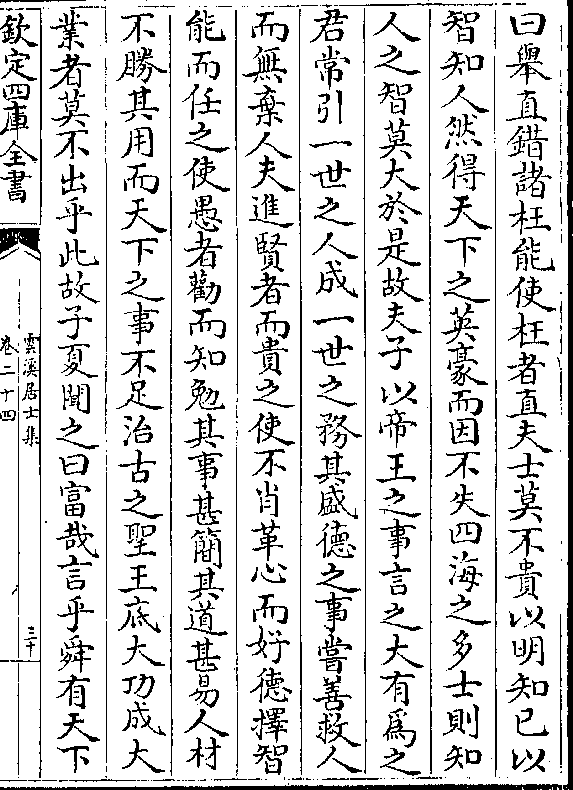 曰舉直錯諸枉能使枉者直夫士莫不貴以明知已以
智知人然得天下之英豪而因不失四海之多士則知
人之智莫大於是故夫子以帝王之事言之大有為之
君常引一世之人成一世之務其盛德之事嘗善救人
而無棄人夫進賢者而貴之使不肖革心而好德擇智
能而任之使愚者勸而知勉其事甚簡其道甚易人材
不勝其用而天下之事不足治古之聖王底大功成大
業者莫不出乎此故子夏聞之曰富哉言乎舜有天下
欽定四庫全書
雲溪居士集
卷二十四
三十